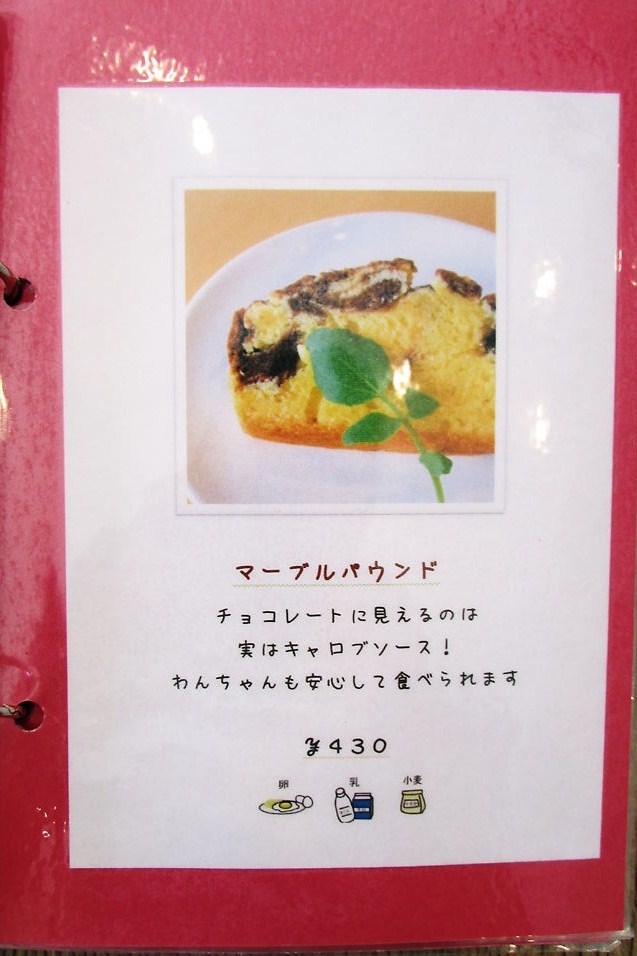 マーブルパウンド
チョコレートに見えるのは
実はキャロブソース！
わんちゃんも安心して食べられます
¥430
卵 乳 小麦